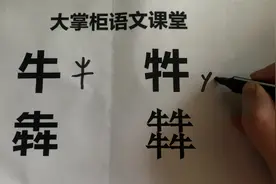 大掌柜语文课堂
牛 牪
犇 𤛭